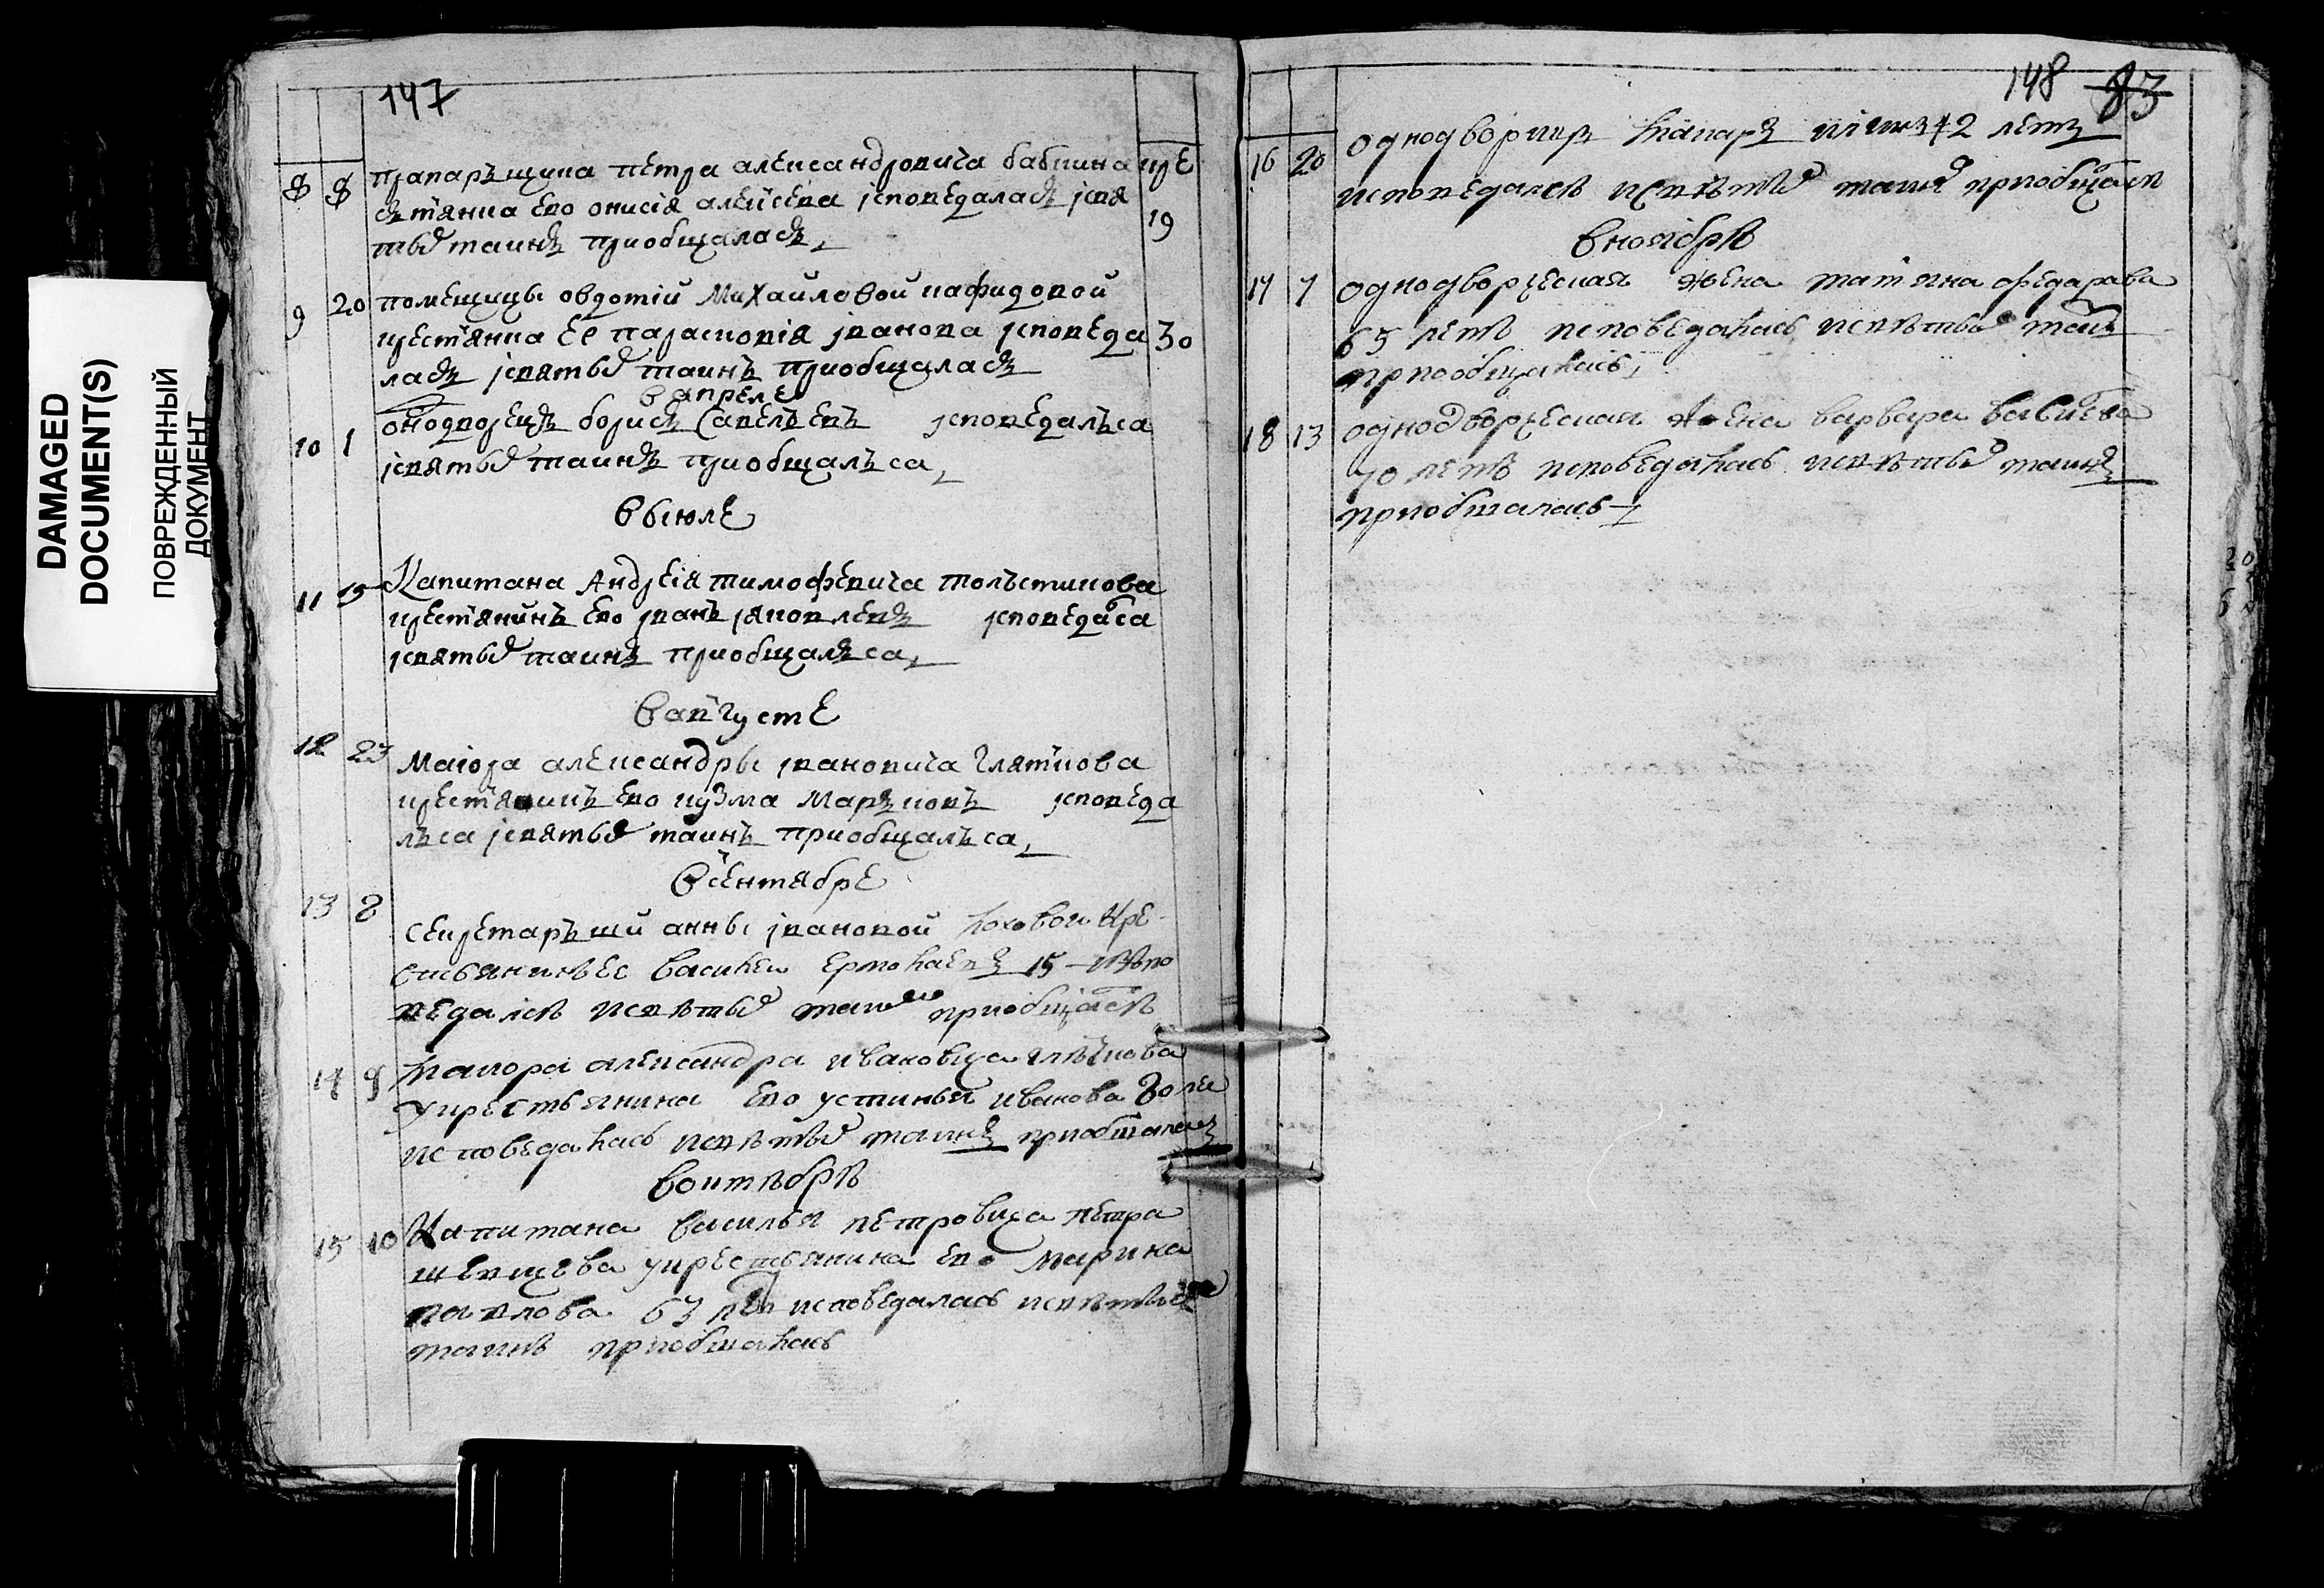 DAMAGED
DOCUMENT(S)
ПОВРЕЖДЕННЫЙ
ДОКУМЕНТ
147
8 8 прапаръщика петра александровича бабкина кре
стьянка ево онисія алеѯеева исповедалась исвя 19
тыхъ таинъ приобщалась
9 20 помещицы овдотіи Михайловой
крестьянка ее парасковія іванова исповеда 30
лась исвятых таинъ приобщалась
в апреле
10 1 однодворецъ борисъ савельевъ исповедалъса
исвятых таинъ приобщалъса
в июле
11 19 Капитана Андреія тимофевича
крестьянинъ ево іванъ яковлевъ исповедалса
исвятых таинъ приобщалъса
в августе
12 23 Маіора александры івановича
крестьянинъ ево кузма Марковъ исповеда
лъса исвятых таинъ приобщалъса
в сентябре
13 8 секретаръши анны івановой кре
стьянинъ ее василеи ермолаевъ 15 испо
ведался исвятых таинъ приобщался
14 9 маиора александра ивановича
укрестьянина ево устинья иванова
исповедалась исвятых таинъ приобщалась
в октябрѣ
15 10 Капитана василья петровича
укрестьянина ево марина
павлова 63 лет исповедалась исвятых
таинъ приобщалась
148 83
16 20 однодворецъ 42 летъ
исповедался исвятых таинъ приобщался
в ноябрѣ
17 7 однодворческая жена татьяна федарава
65 летъ исповедалась исвятых таинъ
приобщалась
18 13 однодворческая жена варвара
70 летъ исповедалась исвятых таинъ
приобщалась